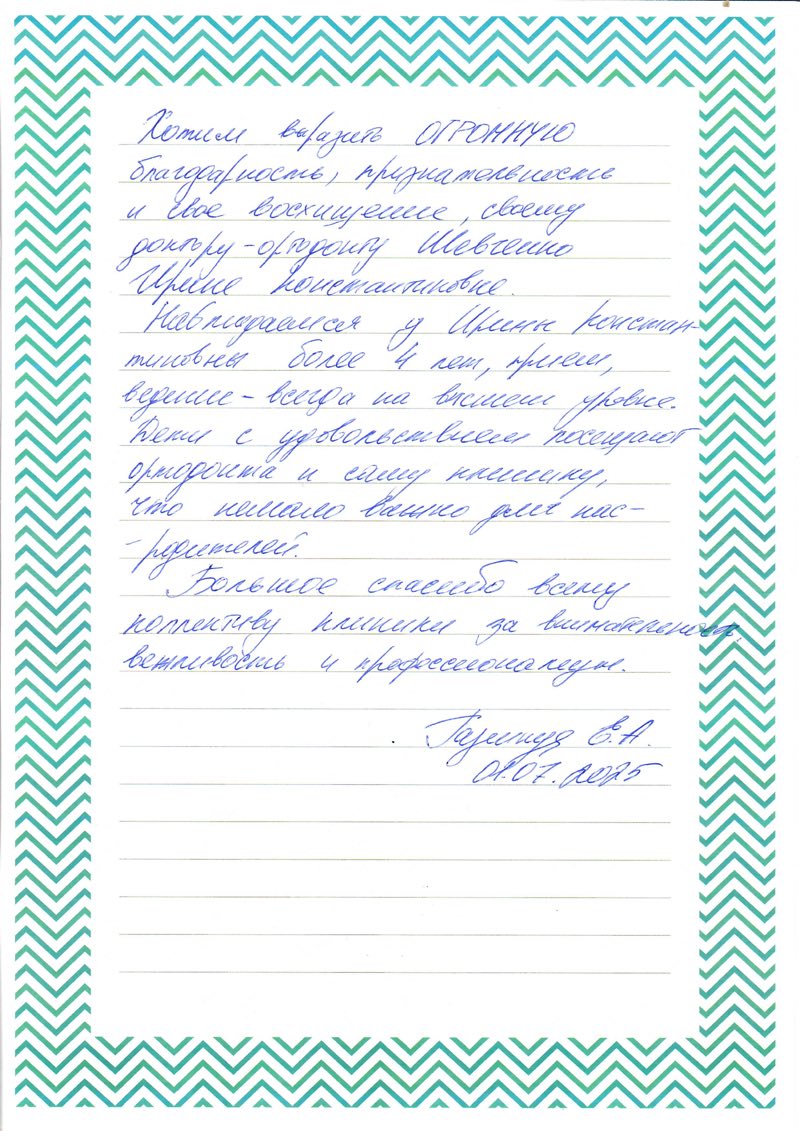 Хотим выразить ОГРОМНУЮ
благодарность, признательность
и свое восхищение, своему
доктору-ортодонту Шевченко
Ирине Константиновне.
Наблюдаемся у Ирины Констан-
тиновны более 4 лет, прием,
ведение - всегда на высшем уровне.
Дети с удовольствием посещают
ортодонта и саму клинику,
что немало важно для нас-
-родителей.
Большое спасибо всему
коллективу клиники за внимательность,
вежливость и профессионализм.
Е.А.
01.07.2025